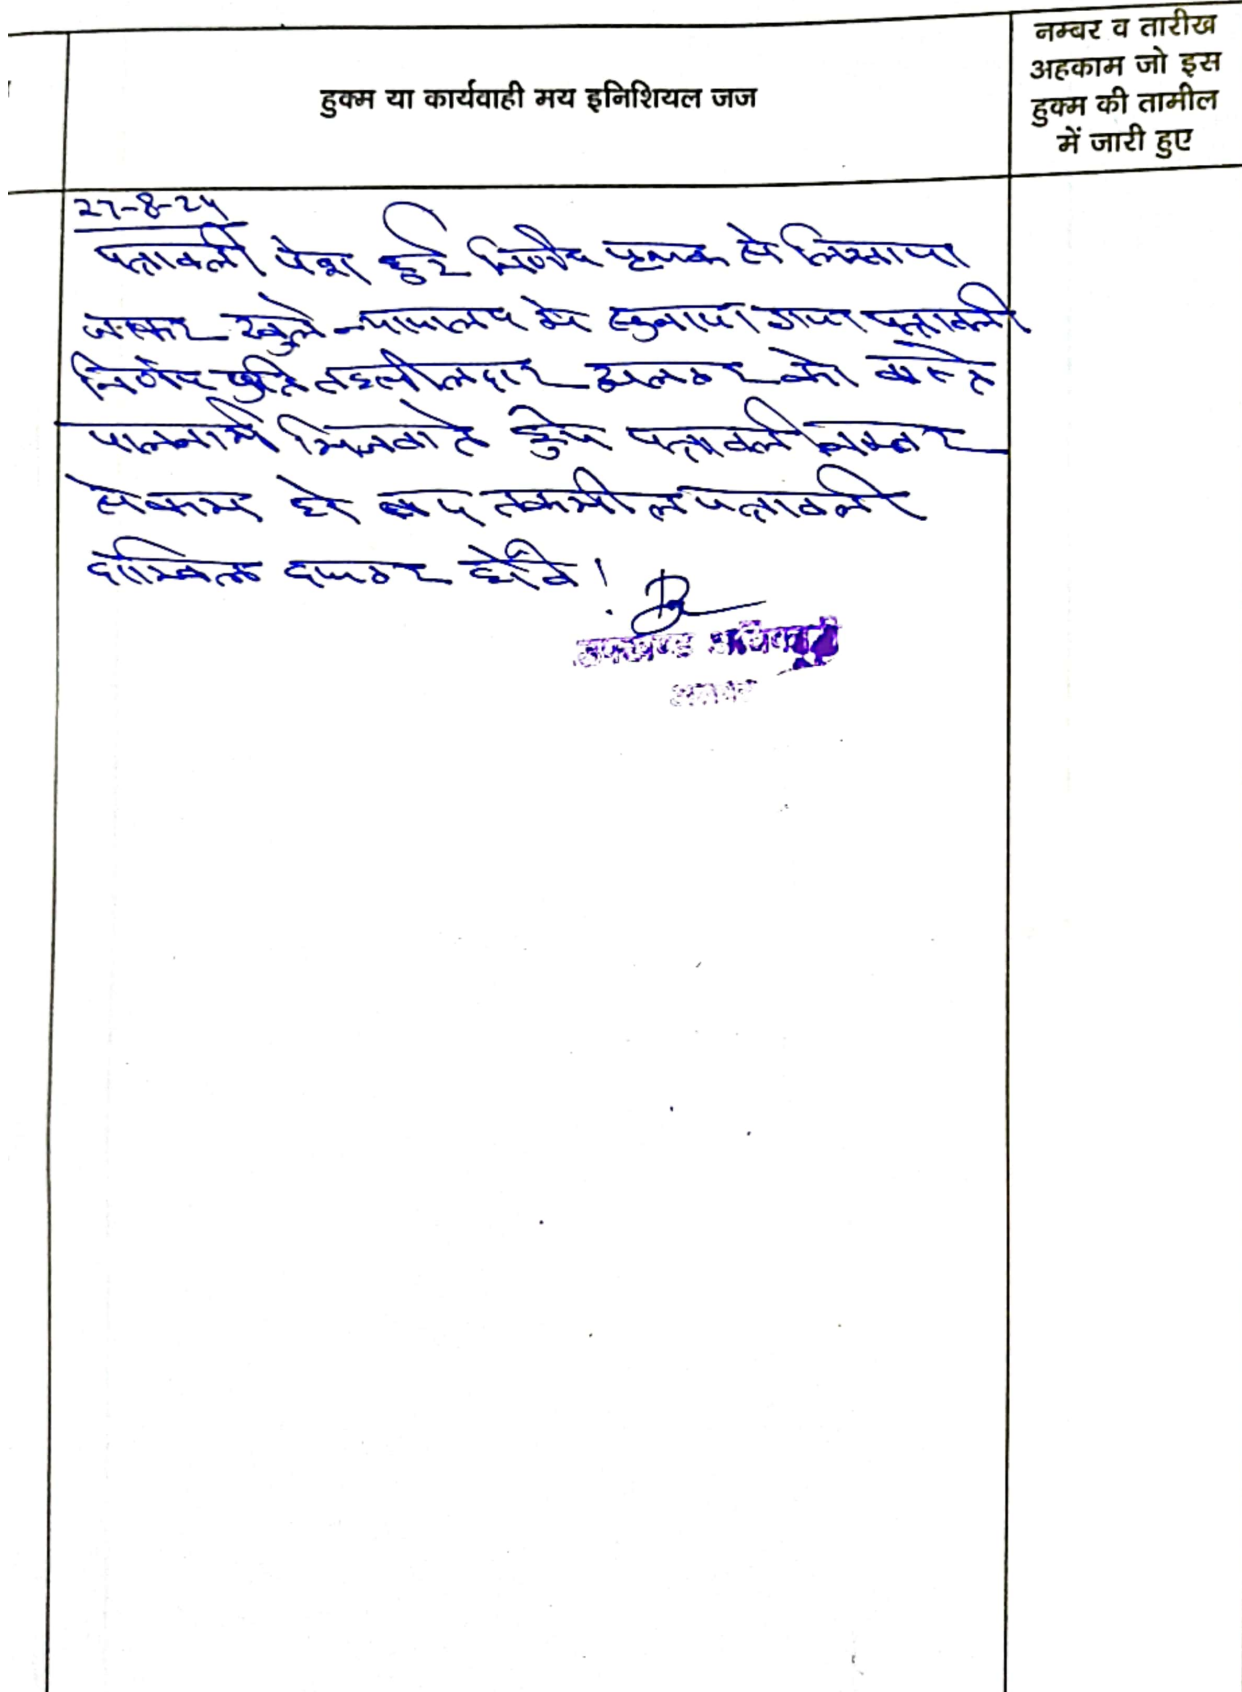 हुक्म या कार्यवाही मय इनिशियल जज
नम्बर व तारीख
अहकाम जो इस
हुक्म की तामील
में जारी हुए
27-8-24
पत्रावली पेश हुई निर्णय पृथक से लिखाया
जाकर खुले न्यायालय मे सुनाया गया पत्रावली
निर्णय प्रति तहसीलदार अलवर को वास्ते
पालनार्थ भिजवाते हुये पत्रावली नम्बर
से कम हो बाद तकमील पत्रावली
दाखिल दफ्तर होवे!
उपखण्ड अधिकारी
अलवर